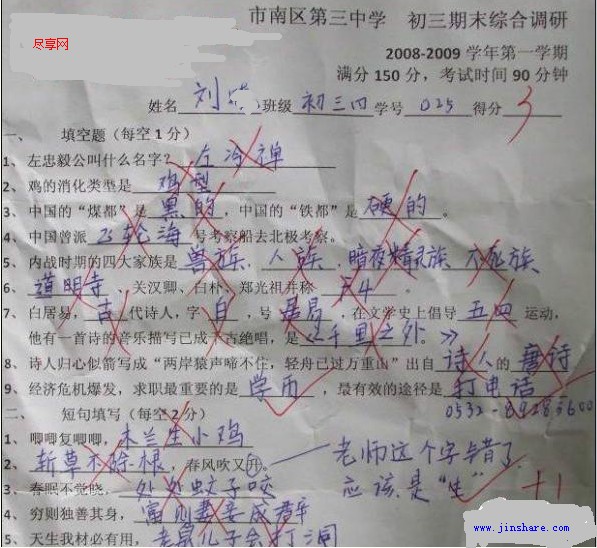 尽享网
市南区第三中学 初三期末综合调研
2008-2009 学年第一学期
满分 150 分，考试时间 90 分钟
姓名 刘 班级 初三四 学号 025 得分 3
一、 填空题（每空 1 分）
1、左忠毅公叫什么名字？ 左冷禅
2、鸡的消化类型是 鸡型
3、中国的“煤都”是 黑的，中国的“铁都”是 硬的。
4、中国曾派 飞轮海 号考察船去北极考察。
5、内战时期的四大家族是 兽族、人族、暗夜精灵族 不死族
6、道明寺、关汉卿、白朴、郑光祖并称 F4。
7、白居易，古代诗人，字 白，号 居易，在文学史上倡导 五四 运动，
他有一首诗的音乐描写已成千古绝唱，是《千里之外。》
8、诗人归心似箭写成“两岸猿声啼不住，轻舟已过万重山”出自 诗人 的 唐诗
9、经济危机爆发，求职最重要的是 学历，最有效的途径是 打电话
0532-89285600
二、 短句填写（每空 2 分）
1、唧唧复唧唧，木兰生小鸡
2、斩草不除根，春风吹又升。——老师这个字错了
应该是“生” +1
3、春眠不觉晓，处处蚊子咬
4、穷则独善其身，富则妻妾成群
5、天生我材必有用，老鼠儿子会打洞
www.jinshare.com